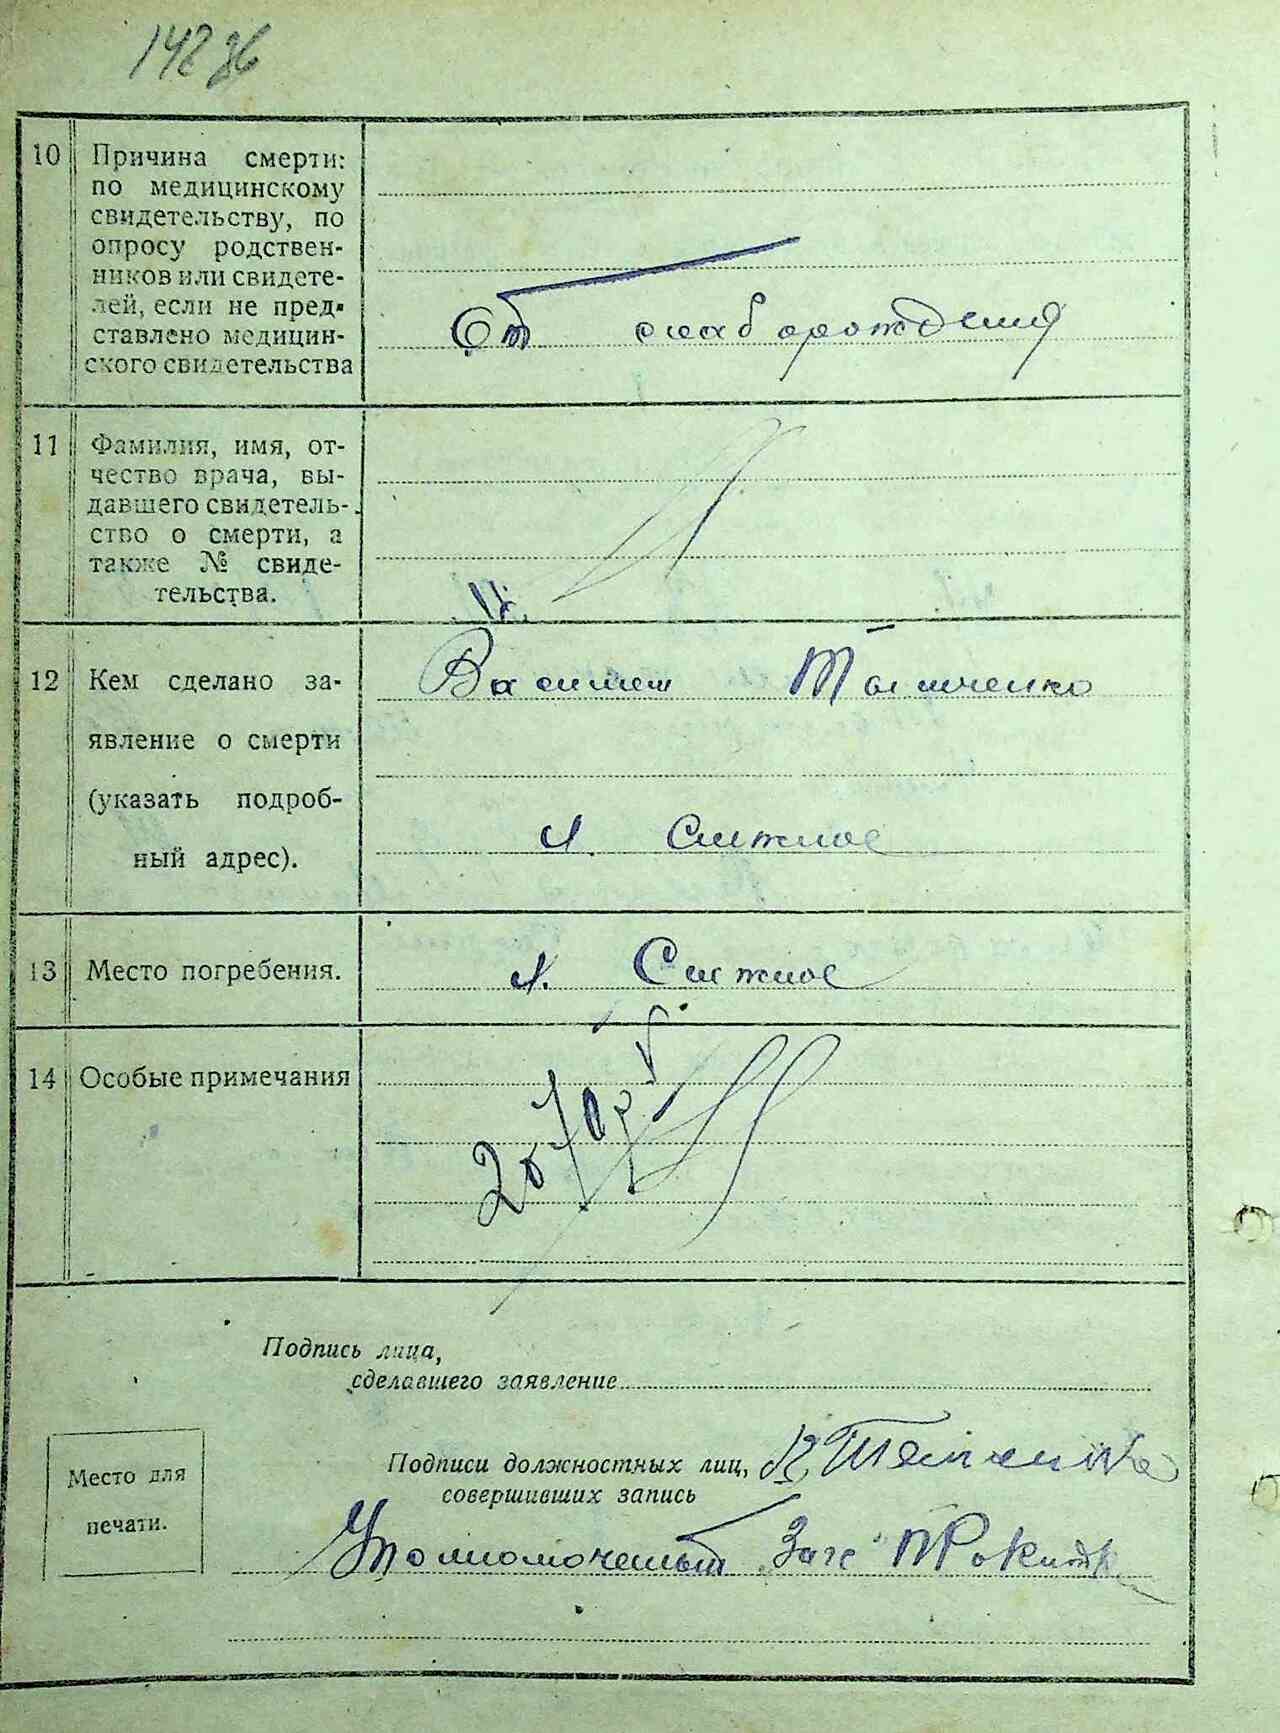 10 Причина смерти:
по медицинскому
свидетельству, по
опросу родствен-
ников или свидете-
лей, если не пред-
ставлено медицин-
ского свидетельства
От слаб орождения
11 Фамилия, имя, от-
чество врача, вы-
давшего свидетель-
ство о смерти, а
также № свиде-
тельства.
12 Кем сделано за-
явление о смерти
(указать подроб-
ный адрес).
Василий
Снежное
13 Место погребения.
Снежное
14 Особые примечания
Подпись лица,
сделавшего заявление
Подписи должностных лиц,
совершивших запись
Место для
печати.
Загс